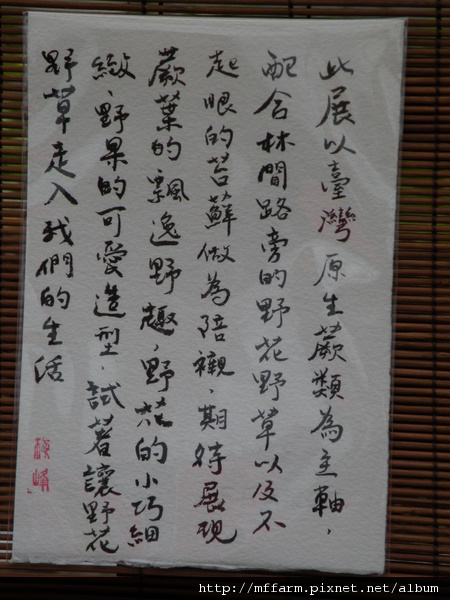 此展以臺灣原生蕨類為主軸，
配合林間路旁的野花野草以及不
起眼的苔蘚做為陪襯，期待展現
蕨葉的飄逸野趣，野花的小巧細
緻、野果的可愛造型，試著讓野花
野草走入我們的生活
http://mffarm.pixnet.net/album